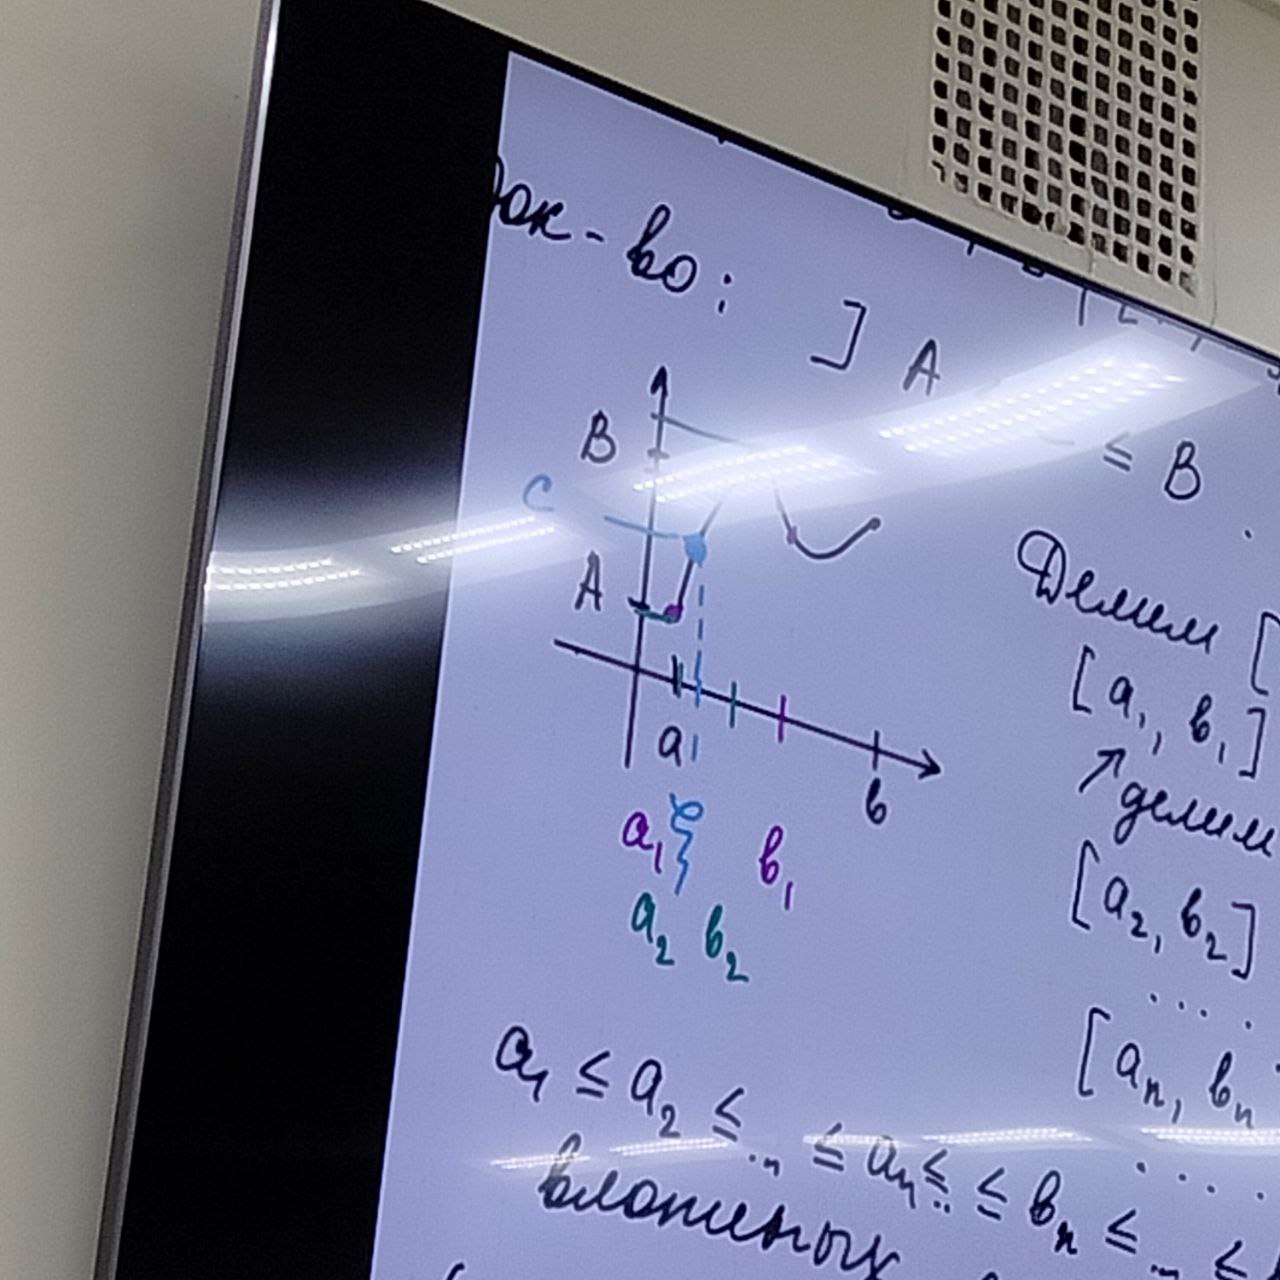 Док-во:
] A
≤ B
B
C
A
a
в
ξ
a₁ в₁
a₂ в₂
Делим [
[a₁, в₁]
↗ делим
[a₂, в₂]
....
[aₙ, вₙ
....
a₁ ≤ a₂ ≤ ... ≤ aₙ ≤ .. ≤ вₙ ≤ ... ≤
вложенных